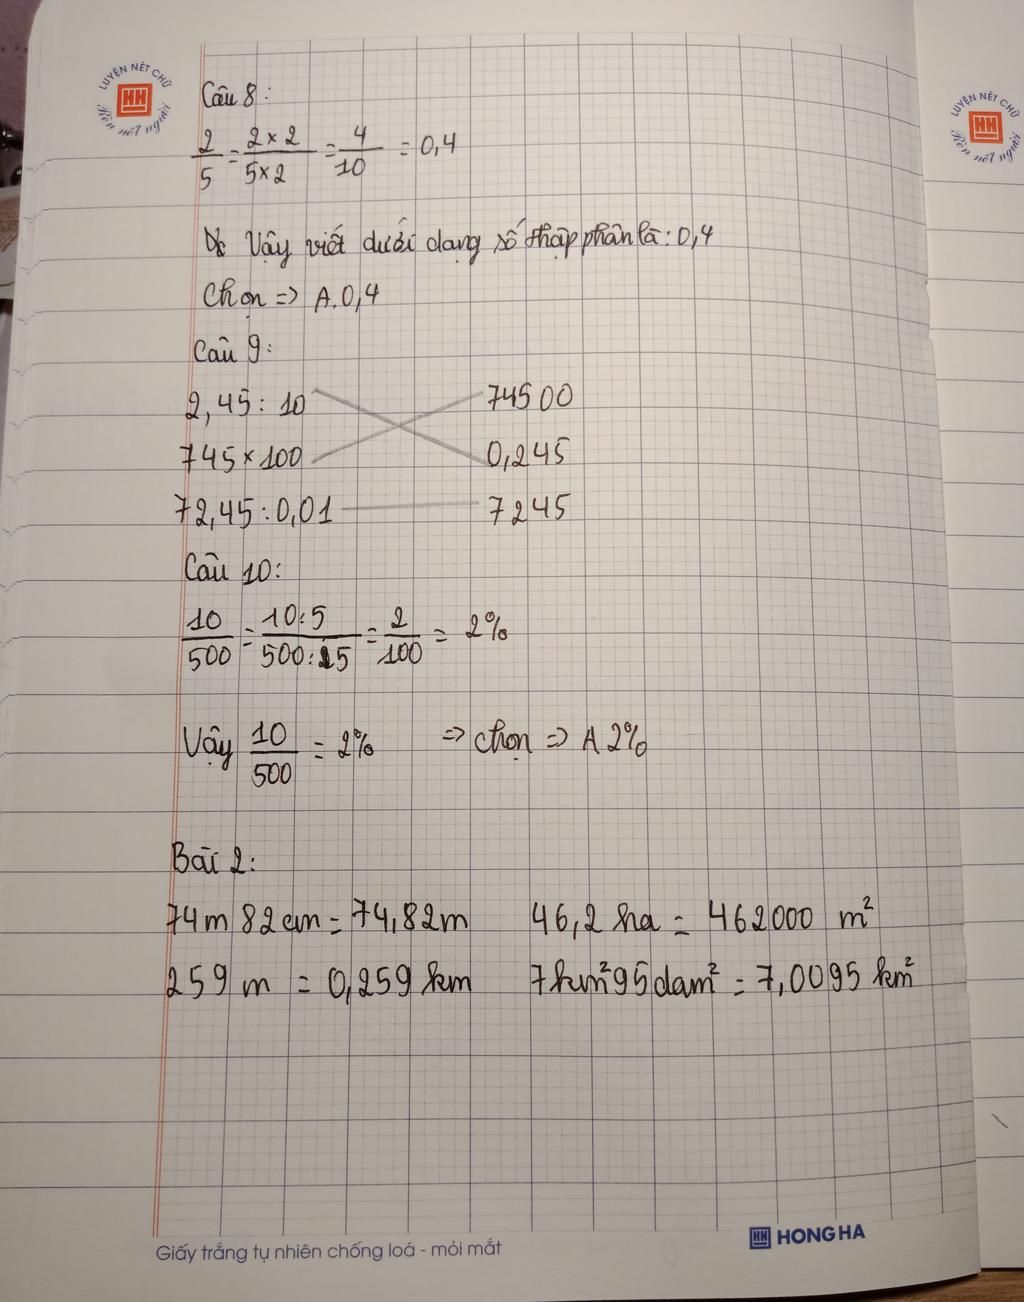 LUYỆN NÉT CHỮ
HH
Rèn nết người
LUYỆN NÉT CHỮ
HH
Rèn nết người
Câu 8:
2/5 = 2×2/5×2 = 4/10 = 0,4
Vậy viết dưới dạng số thập phân là: 0,4
Chọn => A. 0,4
Câu 9:
2,45 : 10 74500
745 × 100 0,245
72,45 : 0,01 7245
Câu 10:
10/500 = 10:5/500:5 = 2/100 = 2%
Vậy 10/500 = 2% => chọn => A 2%
Bài 2:
74m 82cm = 74,82m 46,2 ha = 462000 m²
259 m = 0,259 km 7km² 95dam² = 7,0095 km²
Giấy trắng tự nhiên chống loá - mỏi mắt
HH HONG HA